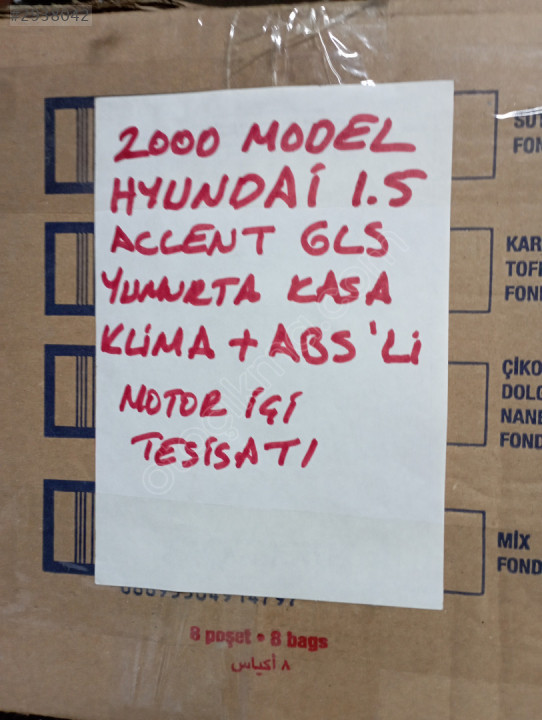 #2938042
2000 MODEL
HYUNDAİ 1.5
ACCENT GLS
YUMURTA KASA
KLİMA + ABS'Lİ
MOTOR İÇİ
TESİSATI
KAR
TOFF
FOND
ÇİKO
DOLG
NANE
FOND
MİX
FOND
8 poşet • 8 bags
٨ أكياس